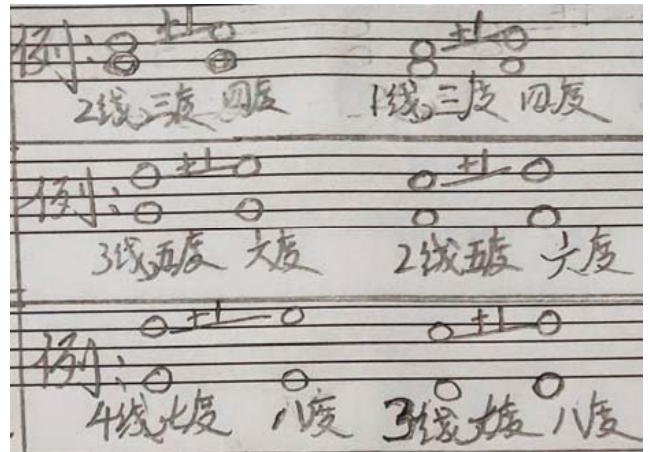 例: +1 +1
2线三度 四度 1线三度 四度
例: +1 +1
3线五度 六度 2线五度 六度
例: +1 +1
4线七度 八度 3线七度 八度